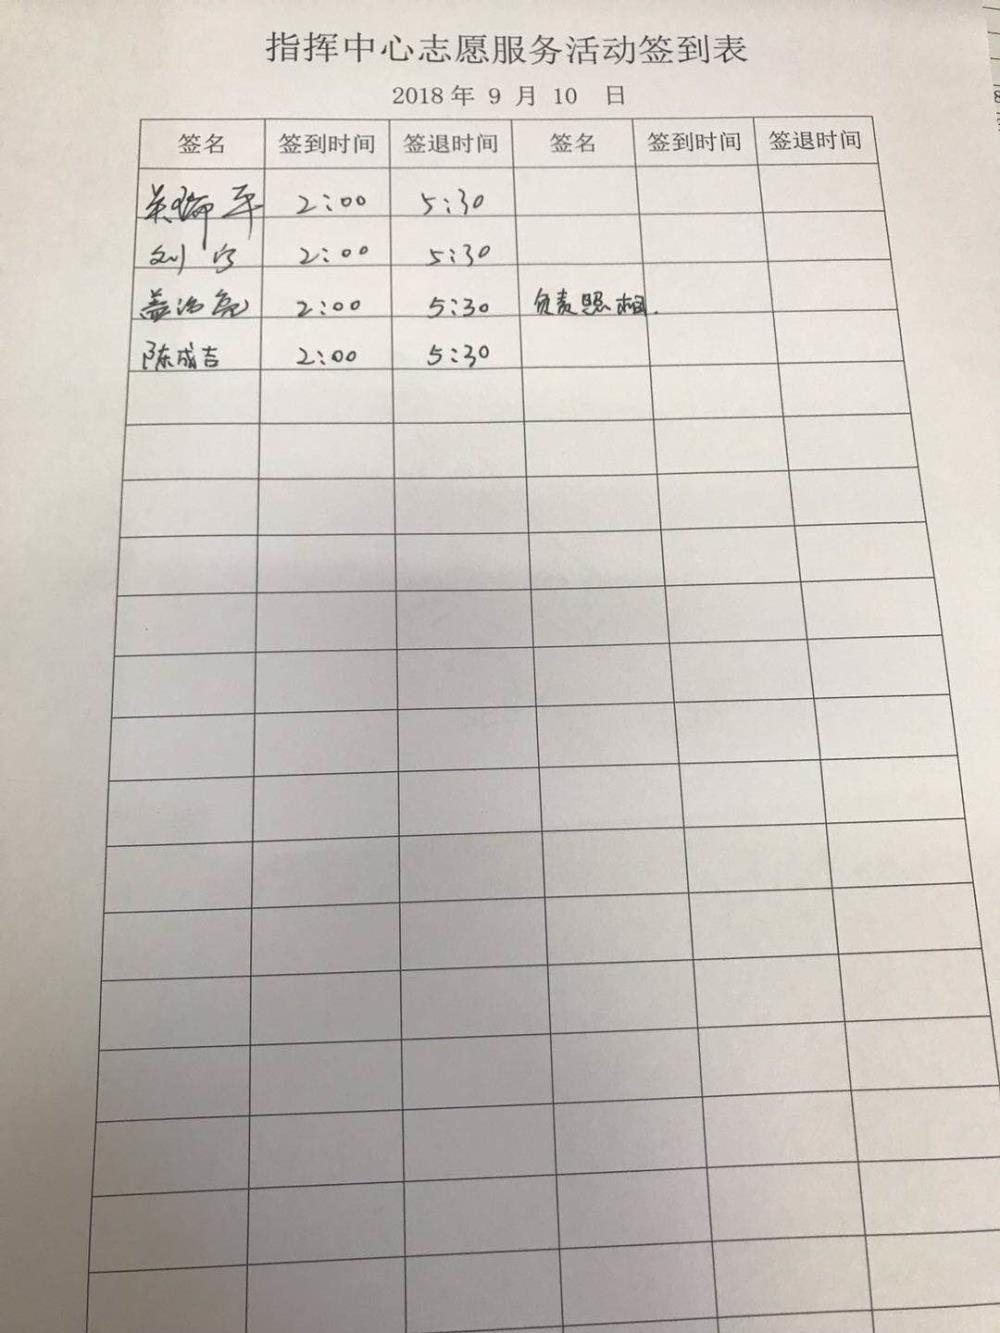 指挥中心志愿服务活动签到表
2018 年 9 月 10 日
签名 签到时间 签退时间 签名 签到时间 签退时间
2:00 5:30
刘 2:00 5:30
盖治亮 2:00 5:30 负责照相.
陈成吉 2:00 5:30